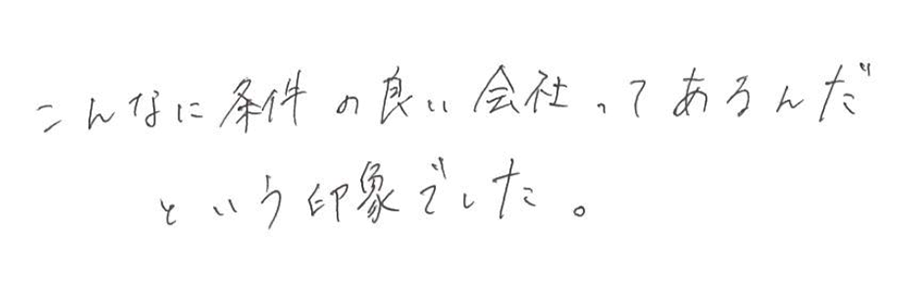 こんなに条件の良い会社ってあるんだ
という印象でした。